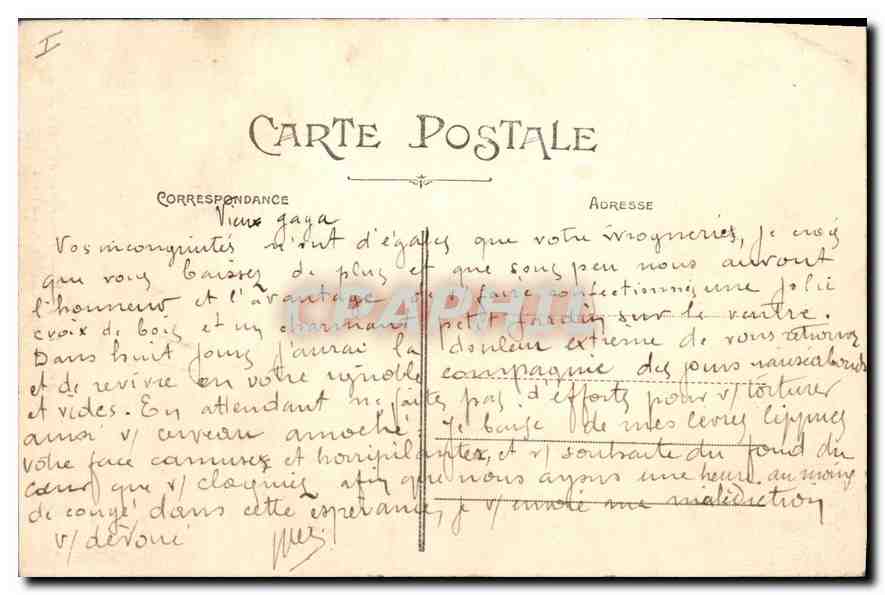 I
CARTE POSTALE
CORRESPONDANCE
ADRESSE
Vieux gaga
Vos incongruités n'ont d'égales que votre ivrogneries, je crois
que vous baissez de plus et que sous peu nous aurons
l'honneur et l'avantage de v/ faire confectionner une jolie
croix de bois et un charmant petit jardin sur le ventre.
Dans huit jours j'aurai la douleur extrême de vous retrouver
et de revivre en votre ignoble compagnie des jours nauséabonds
et vides. En attendant ne faites pas d'efforts pour v/ torturer
ainsi v/ cerveau amoché. Je baise de mes lèvres lippues
votre face camuse et horripilante, et v/ souhaite du fond du
cœur que v/ claquiez afin que nous ayons une heure au moins
de congé dans cette espérance, je v/ envoie ma malédiction
v/ dévoué
CPAPHIL